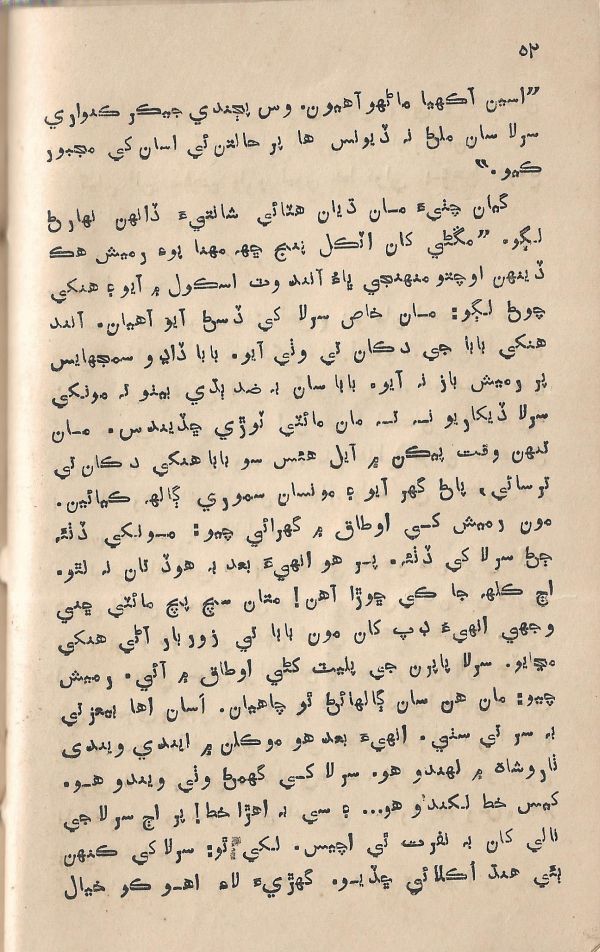 ٥٢
”اسين آڪهيا ماڻهو آهيون. وس پڄندي جيڪر ڪنواري
سرلا سان ملڻ نہ ڏيونس ها پر حالتن ئي اسان کي مجبور
ڪيو.“
گيان چنيءَ مـان ڌيان هٽائي شانتيءَ ڏانهن نهارڻ
لڳو. ”مڱڻي کان اٽڪل پنج ڇهہ مهنا پوءِ رميش هڪ
ڏينهن اوچتو منهنجي ڀاءُ آنند وٽ اسڪول ۾ آيو ۽ هنکي
چوڻ لڳو: مـان خاص سرلا کي ڏسڻ آيو آهيان. آنند
هنکي بابا جي دڪان تي وٺي آيو. بابا ڏاڍو سمجهايس
پر رميش باز نہ آيو. بابا سان بہ ضد ٻڌي بيٺو تہ مونکي
سرلا ڏيکاريو نـہ تـہ مان مائٽي ٽوڙي ڇڏيندس. مـان
تنهن وقت پيڪن ۾ آيل هئس سو بابا هنکي دڪان تي
ترسائي، پاڻ گهر آيو ۽ مونسان سموري ڳالھہ ڪيائين.
مون رميش کـي اوطاق ۾ گهرائي چيو: مـونکي ڏٺئہ
ڄڻ سرلا کي ڏٺئہ. پـر هو انهيءَ بعد بہ هوڏ تان نہ لٿو.
اڄ ڪلھہ جا ڪي ڇوڙا آهن! متان سچ پچ مائٽي ڇني
وجهي انهيءَ ڊپ کان مون بابا تي زور بار آڻي هنکي
مڃايو. سرلا پاپرن جي پليٽ کڻي اوطاق ۾ آئي. رميش
چيو: مان هن سان ڳالهائڻ ٿو چاهيان. اَسان اها بيعزتي
بہ سر تي سٺي. انهيءَ بعد هو موڪلن ۾ ايندي ويندي
ٺاروشاهہ ۾ لهندو هو. سرلا کـي گهمڻ وٺي ويندو هـو.
کيس خط لکندو هو... ۽ سي بہ اهڙا خط! پر اڄ سرلا جي
نالي کان بہ نفرت ٿي اچيس. لکي ٿو: سرلا کي ڪنهن
ٻئي هنڌ اُڪلائي ڇڏيـو. گهڙيءَ لاءِ اهـو ڪو خيال